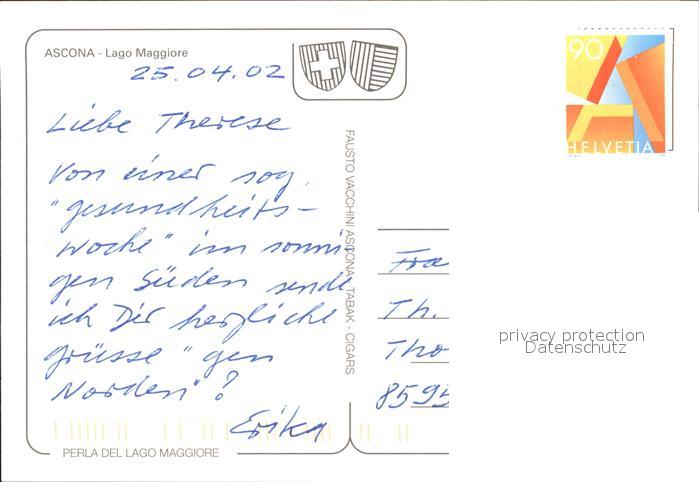 ASCONA - Lago Maggiore
25.04.02
Liebe Therese
Von einer sog.
"gesundheits-
woche" im sonni-
gen Süden sende
ich Dir herzliche
grüsse "gen
Norden"?
Erika
PERLA DEL LAGO MAGGIORE
FAUSTO VACCHINI ASCONA - TABAK - CIGARS
90
HELVETIA
Fra
Th.
Tho
8595
privacy protection
Datenschutz